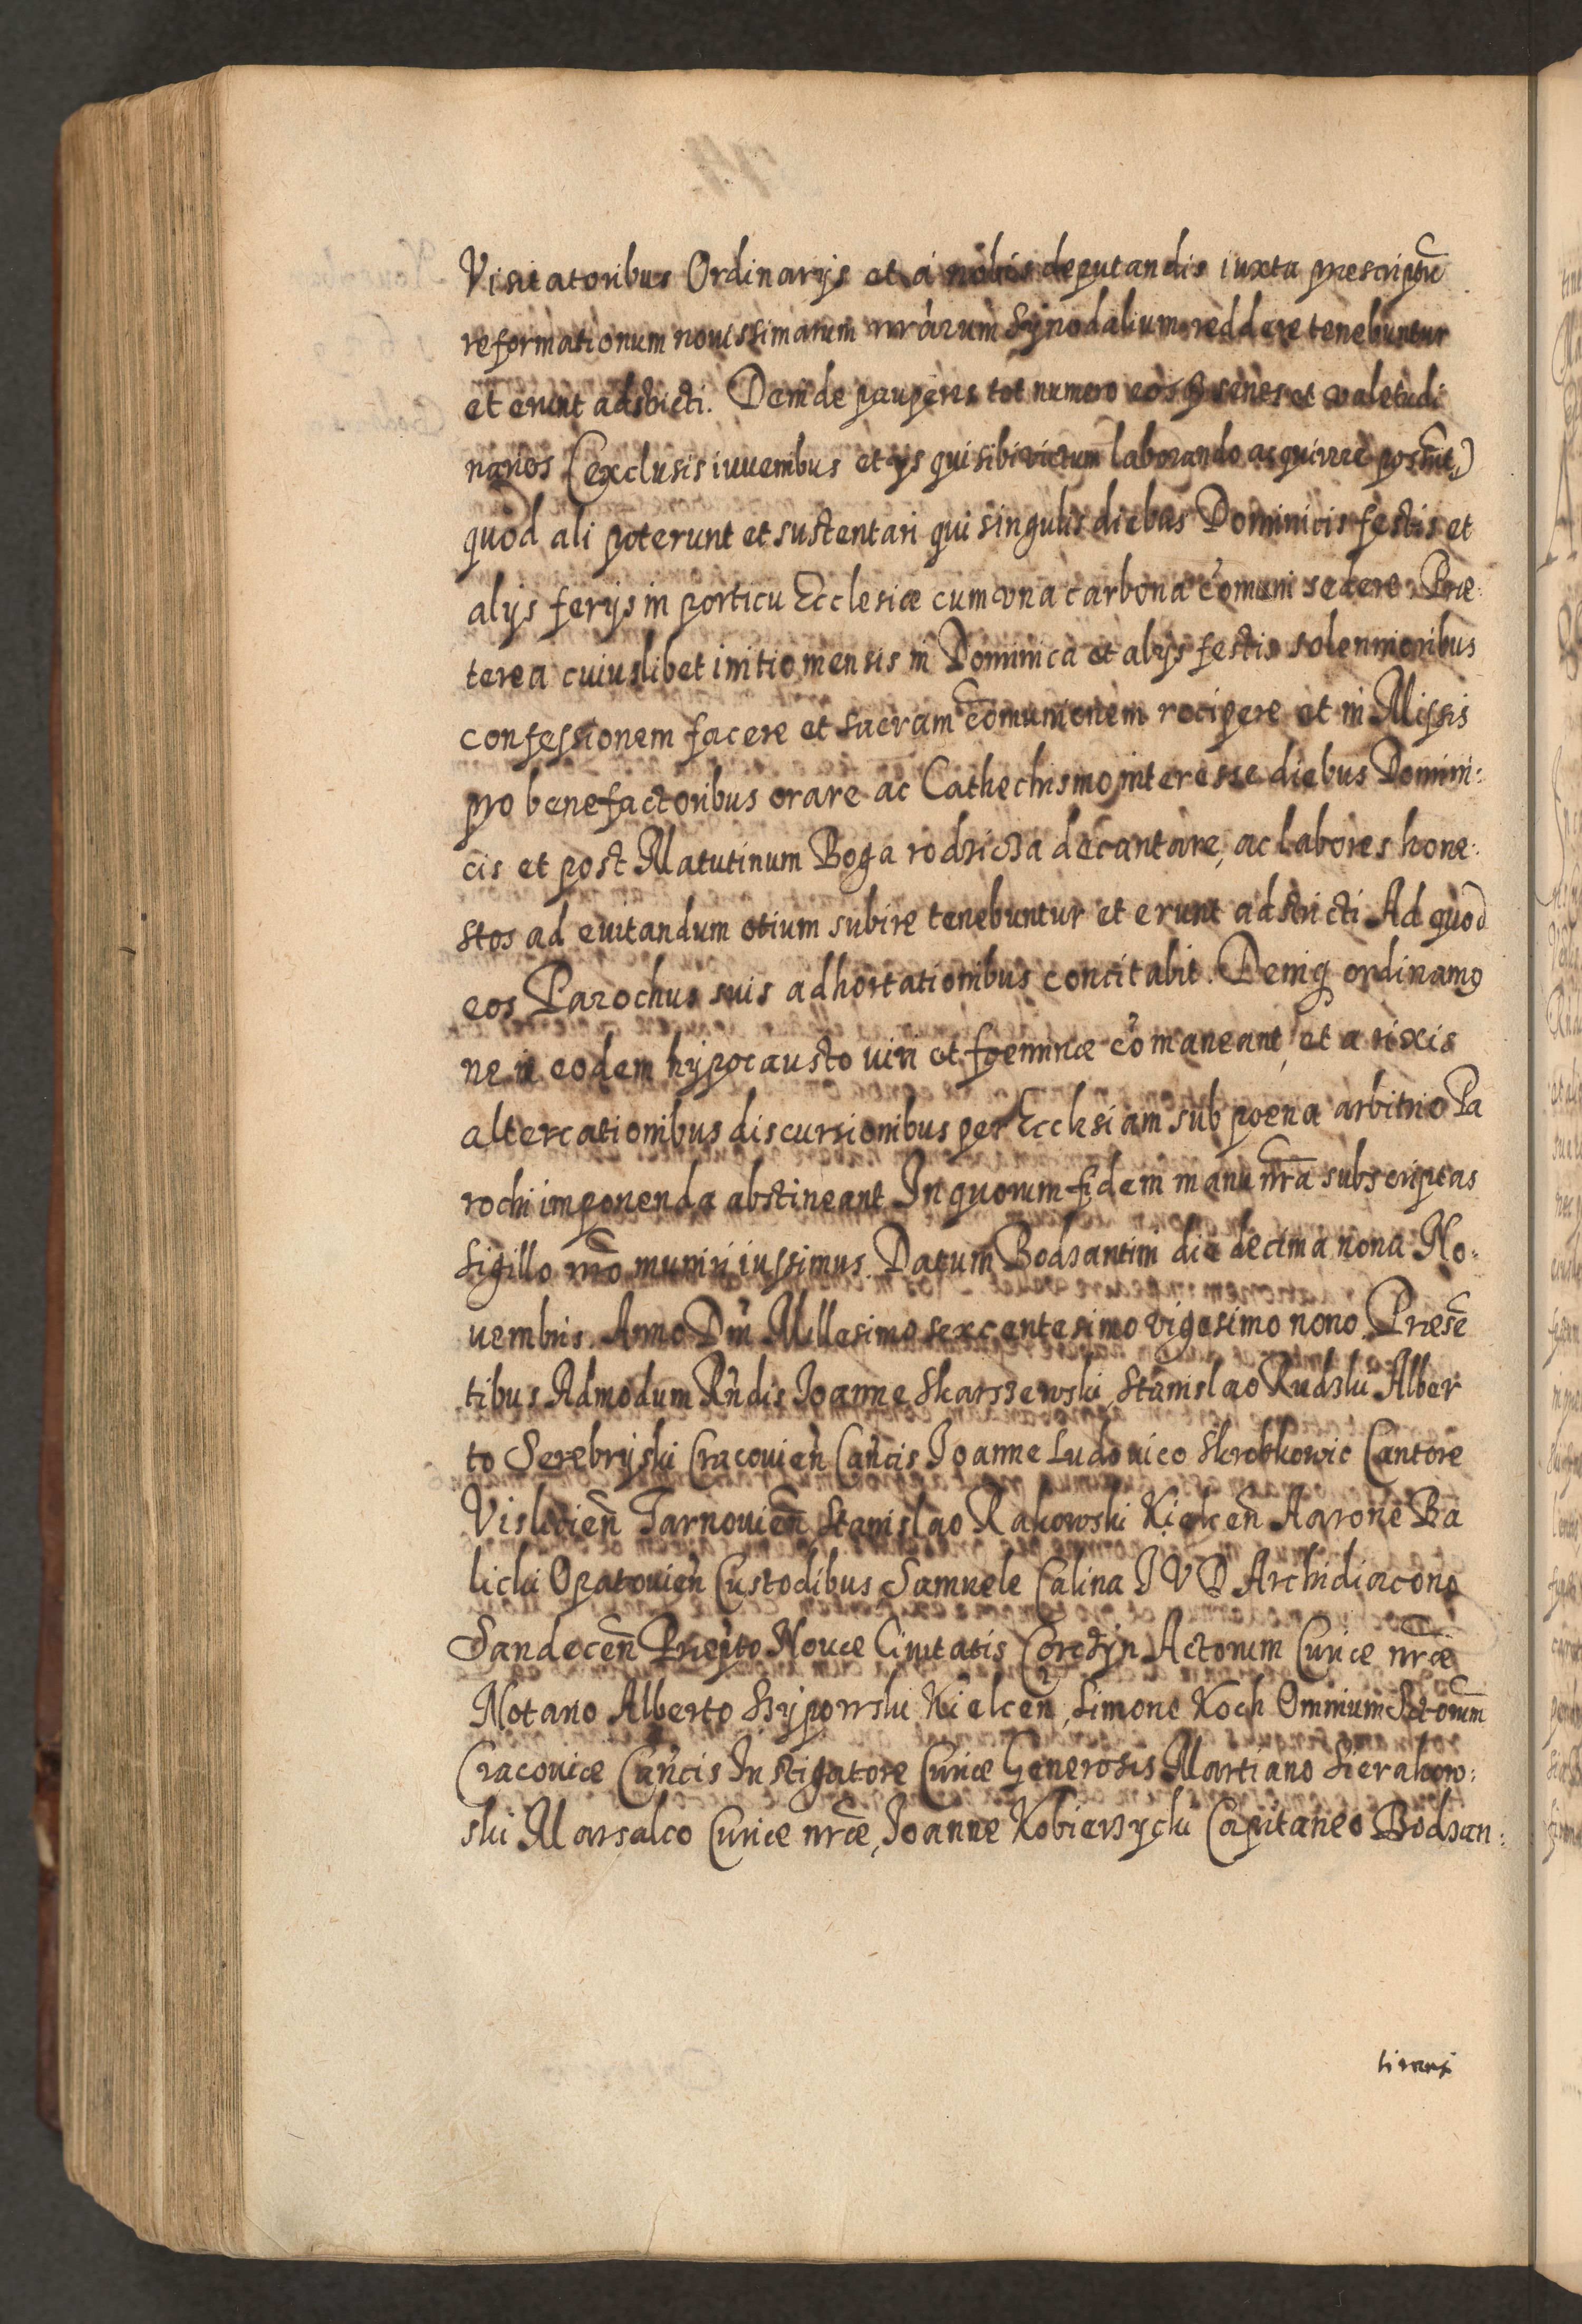 Visitatoribus Ordinarijs et á nobis deputandis iuxta præscriptũ
reformationum nouissimarum nr̃arum Synodalium reddere tenebuntur
et erunt adstricti. Deinde pauperes tot numero eosq̃ senes et valetudi
narios (exclusis iuuenibus et ijs qui sibi victum laborando acquirere possũt)
quod ali poterunt et sustentari qui singulis diebus Dominicis festis et
alijs ferijs in porticu Ecclesiæ cum vna carbona cõmuni sedere. Præ
terea cuiuslibet initio mensis in Dominica et alijs festis solennioribus
confessionem facere et sacram cõmunionem recipere et in Missis
pro benefactoribus orare ac Cathechismo interesse diebus Domini:
cis et post Matutinum Boga rodzicza decantare, ac labores hone:
stos ad euitandum otium subire tenebuntur et erunt adstricti Ad quod
eos Parochus suis adhortationibus concitabit. Deniq̃ ordinamꝰ
ne in eodem hypocausto viri et foeminæ cõmaneant, et a rixis
altercationibus discursionibus per Ecclesiam sub poena arbitrio Pa
rochi imponenda abstineant In quorum fidem manu nr̃a subscriptas
Sigillo nr̃o muniri iussimus. Datum Bodzantini die decima nona No:
uembris. Anno Dni Millesimo sexcentesimo vigesimo nono. Præsẽ
tibus Admodum Rndis Joanne Skarszewski, Stanislao Rudzki Alber
to Serebryski Cracouien̄ Can̄cis Joanne Ludouico Skrobkowic Cantore
Vislicien̄ Tarnouien̄ Stanislao Rakowski Kielcen̄ Aarone Ba
licki Opatouien̄ Custodibus Samuele Calina I V D Archidiacono
Sandecen̄ Præpto Nouæ Ciuitatis Corczyn Actorum Curiæ nr̃æ
Notario Alberto Szypowski Kielcen̄, Simone Koch Omnium Sctorum
Cracouiæ Can̄cis Instigatore Curiæ Generosis Martiano Sierakow:
ski Marsalco Curiæ nr̃æ, Joanne Kobierzycki Capitaneo Bodzan: